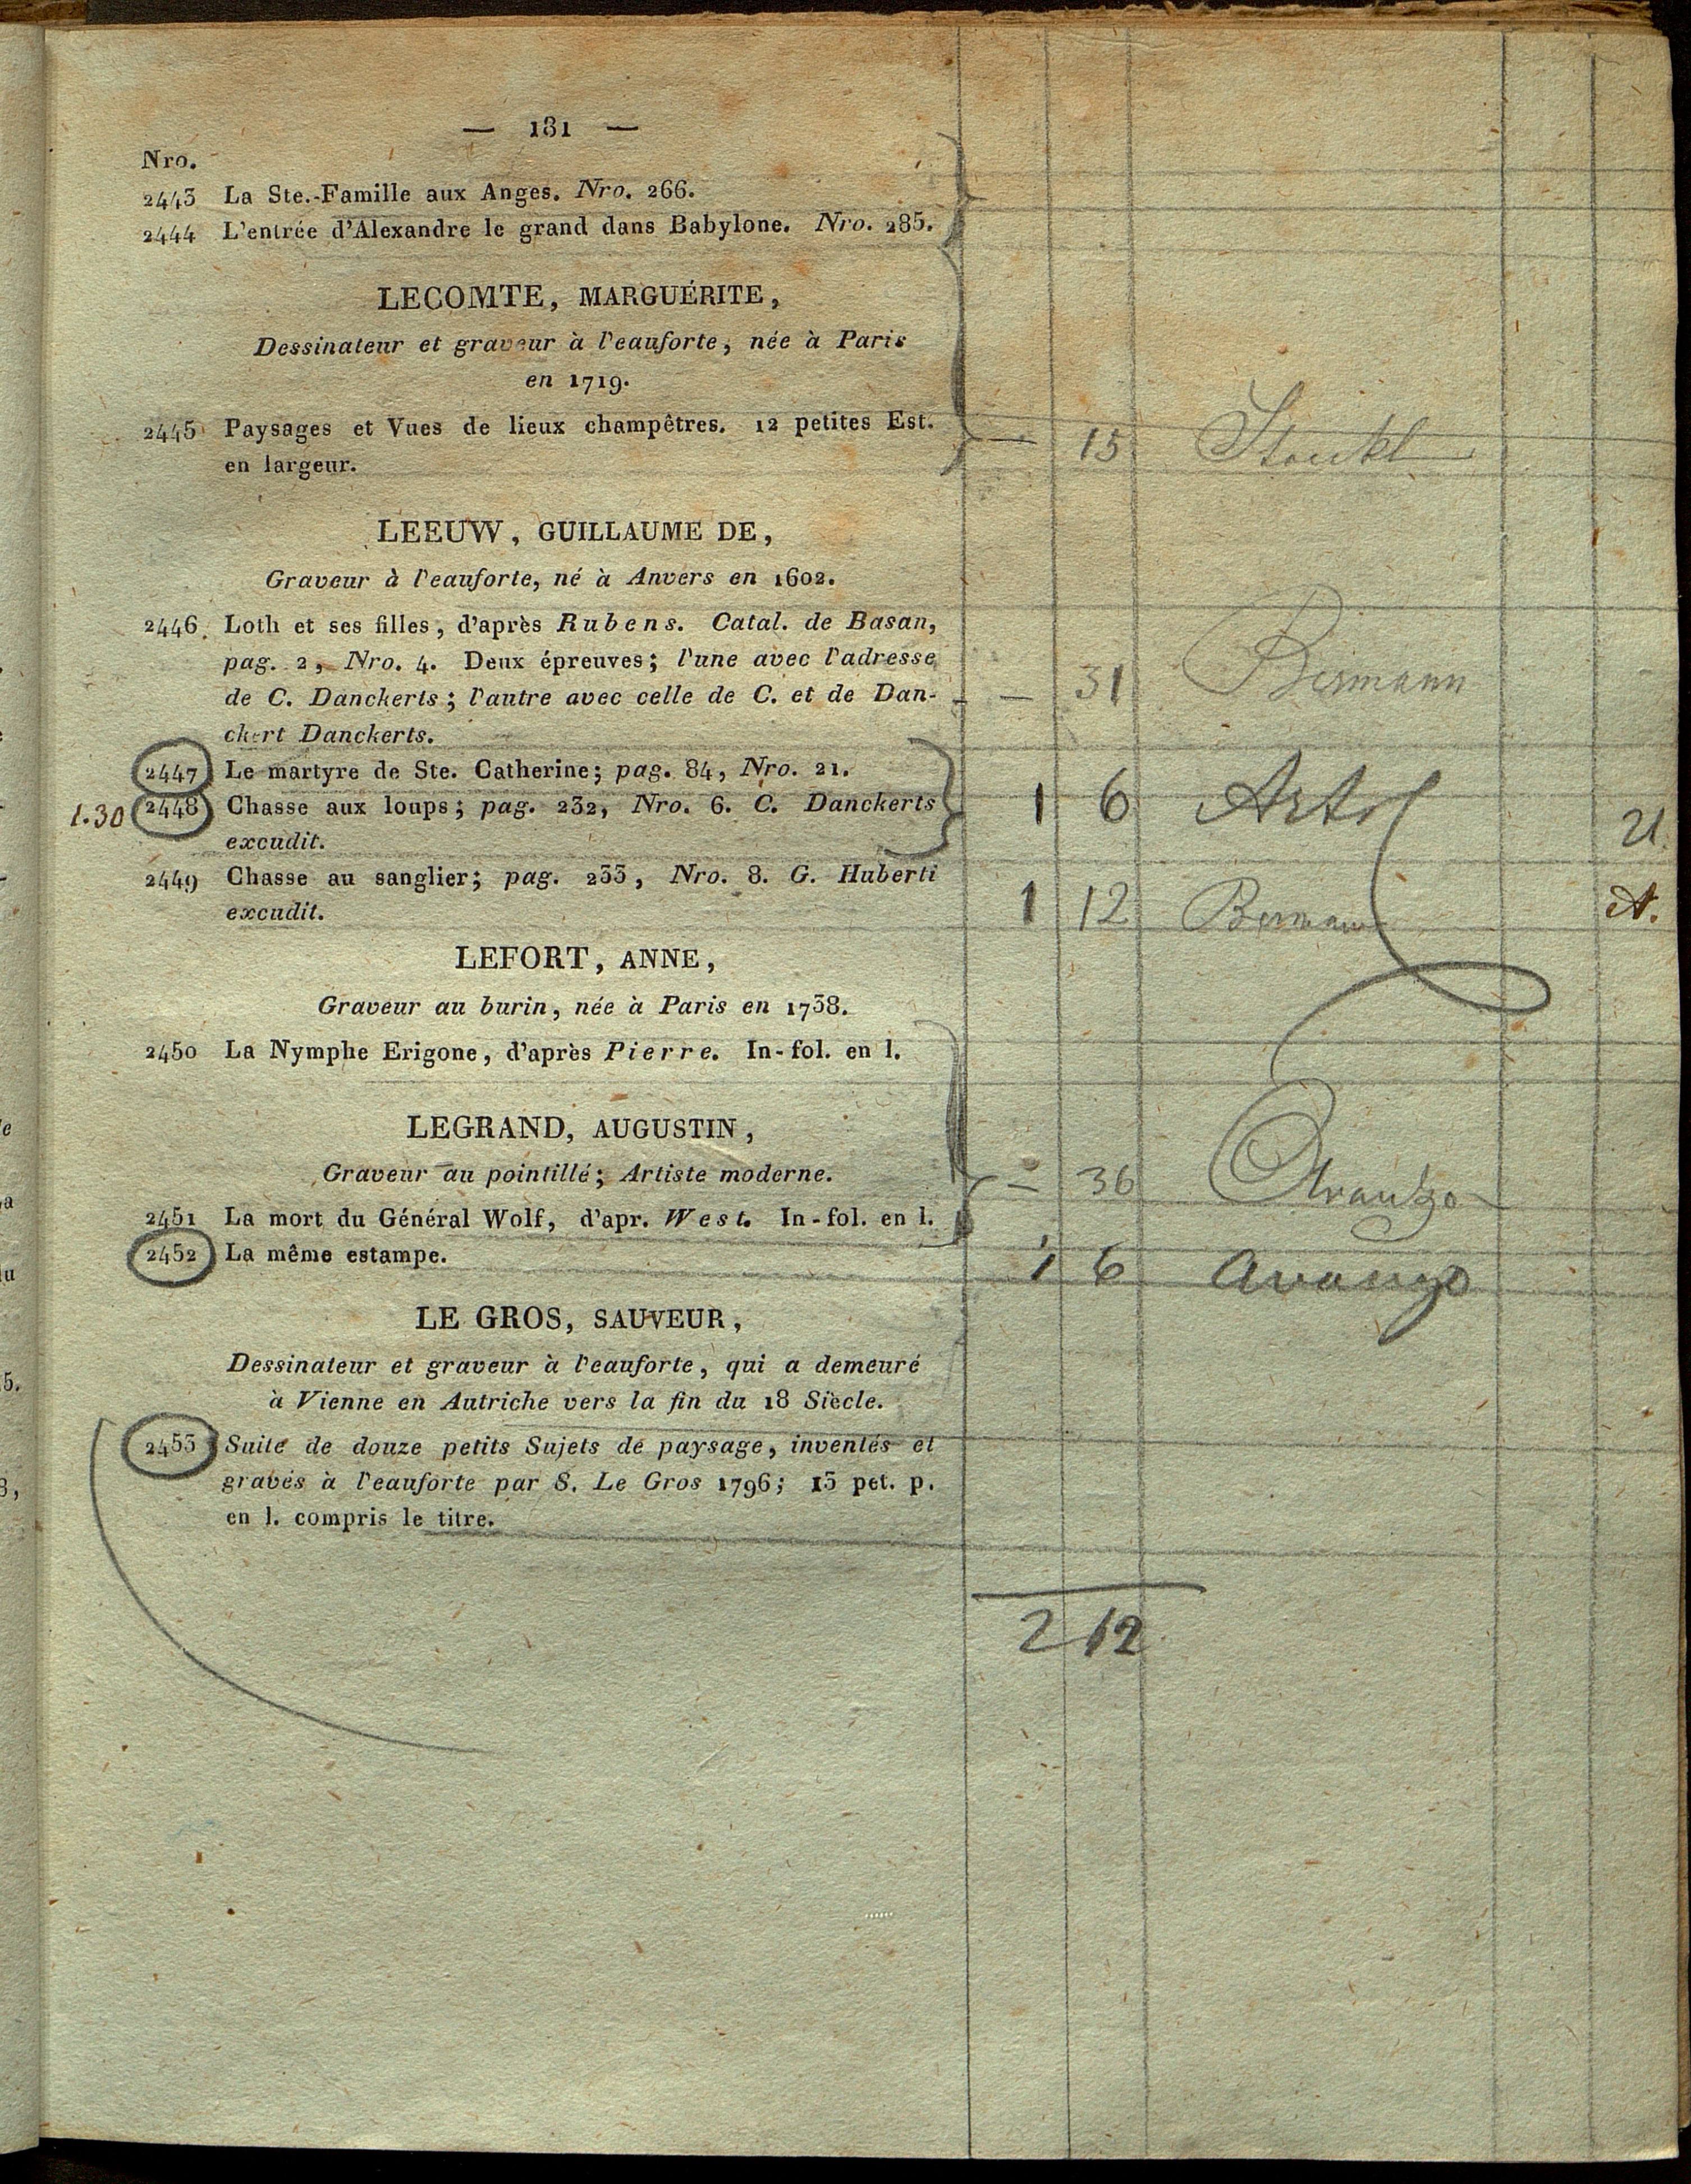 — 181 —
Nro.
2443 La Ste.-Famille aux Anges. Nro. 266.
2444 L'entrée d'Alexandre le grand dans Babylone. Nro. 285.
LECOMTE, MARGUÉRITE,
Dessinateur et graveur à l'eauforte, née à Paris
en 1719.
2445 Paysages et Vues de lieux champêtres. 12 petites Est. — 15
en largeur.
LEEUW, GUILLAUME DE,
Graveur à l'eauforte, né à Anvers en 1602.
2446. Loth et ses filles, d'après Rubens. Catal. de Basan,
pag. 2, Nro. 4. Deux épreuves; l'une avec l'adresse
de C. Danckerts; l'autre avec celle de C. et de Dan- — 31 Bermann
ckert Danckerts.
2447 Le martyre de Ste. Catherine; pag. 84, Nro. 21.
1.30 2448 Chasse aux loups; pag. 232, Nro. 6. C. Danckerts 1 6
excudit.
2449 Chasse au sanglier; pag. 233, Nro. 8. G. Huberti
excudit. 1 12 Bermann A.
LEFORT, ANNE,
Graveur au burin, née à Paris en 1738.
2450 La Nymphe Erigone, d'après Pierre. In-fol. en l.
LEGRAND, AUGUSTIN,
Graveur au pointillé; Artiste moderne. — 36
2451 La mort du Général Wolf, d'apr. West. In-fol. en l.
2452 La même estampe. 1 6 Avanzo
LE GROS, SAUVEUR,
Dessinateur et graveur à l'eauforte, qui a demeuré
à Vienne en Autriche vers la fin du 18 Siècle.
2453 Suite de douze petits Sujets de paysage, inventés et
gravés à l'eauforte par S. Le Gros 1796; 13 pet. p.
en l. compris le titre.
2 12